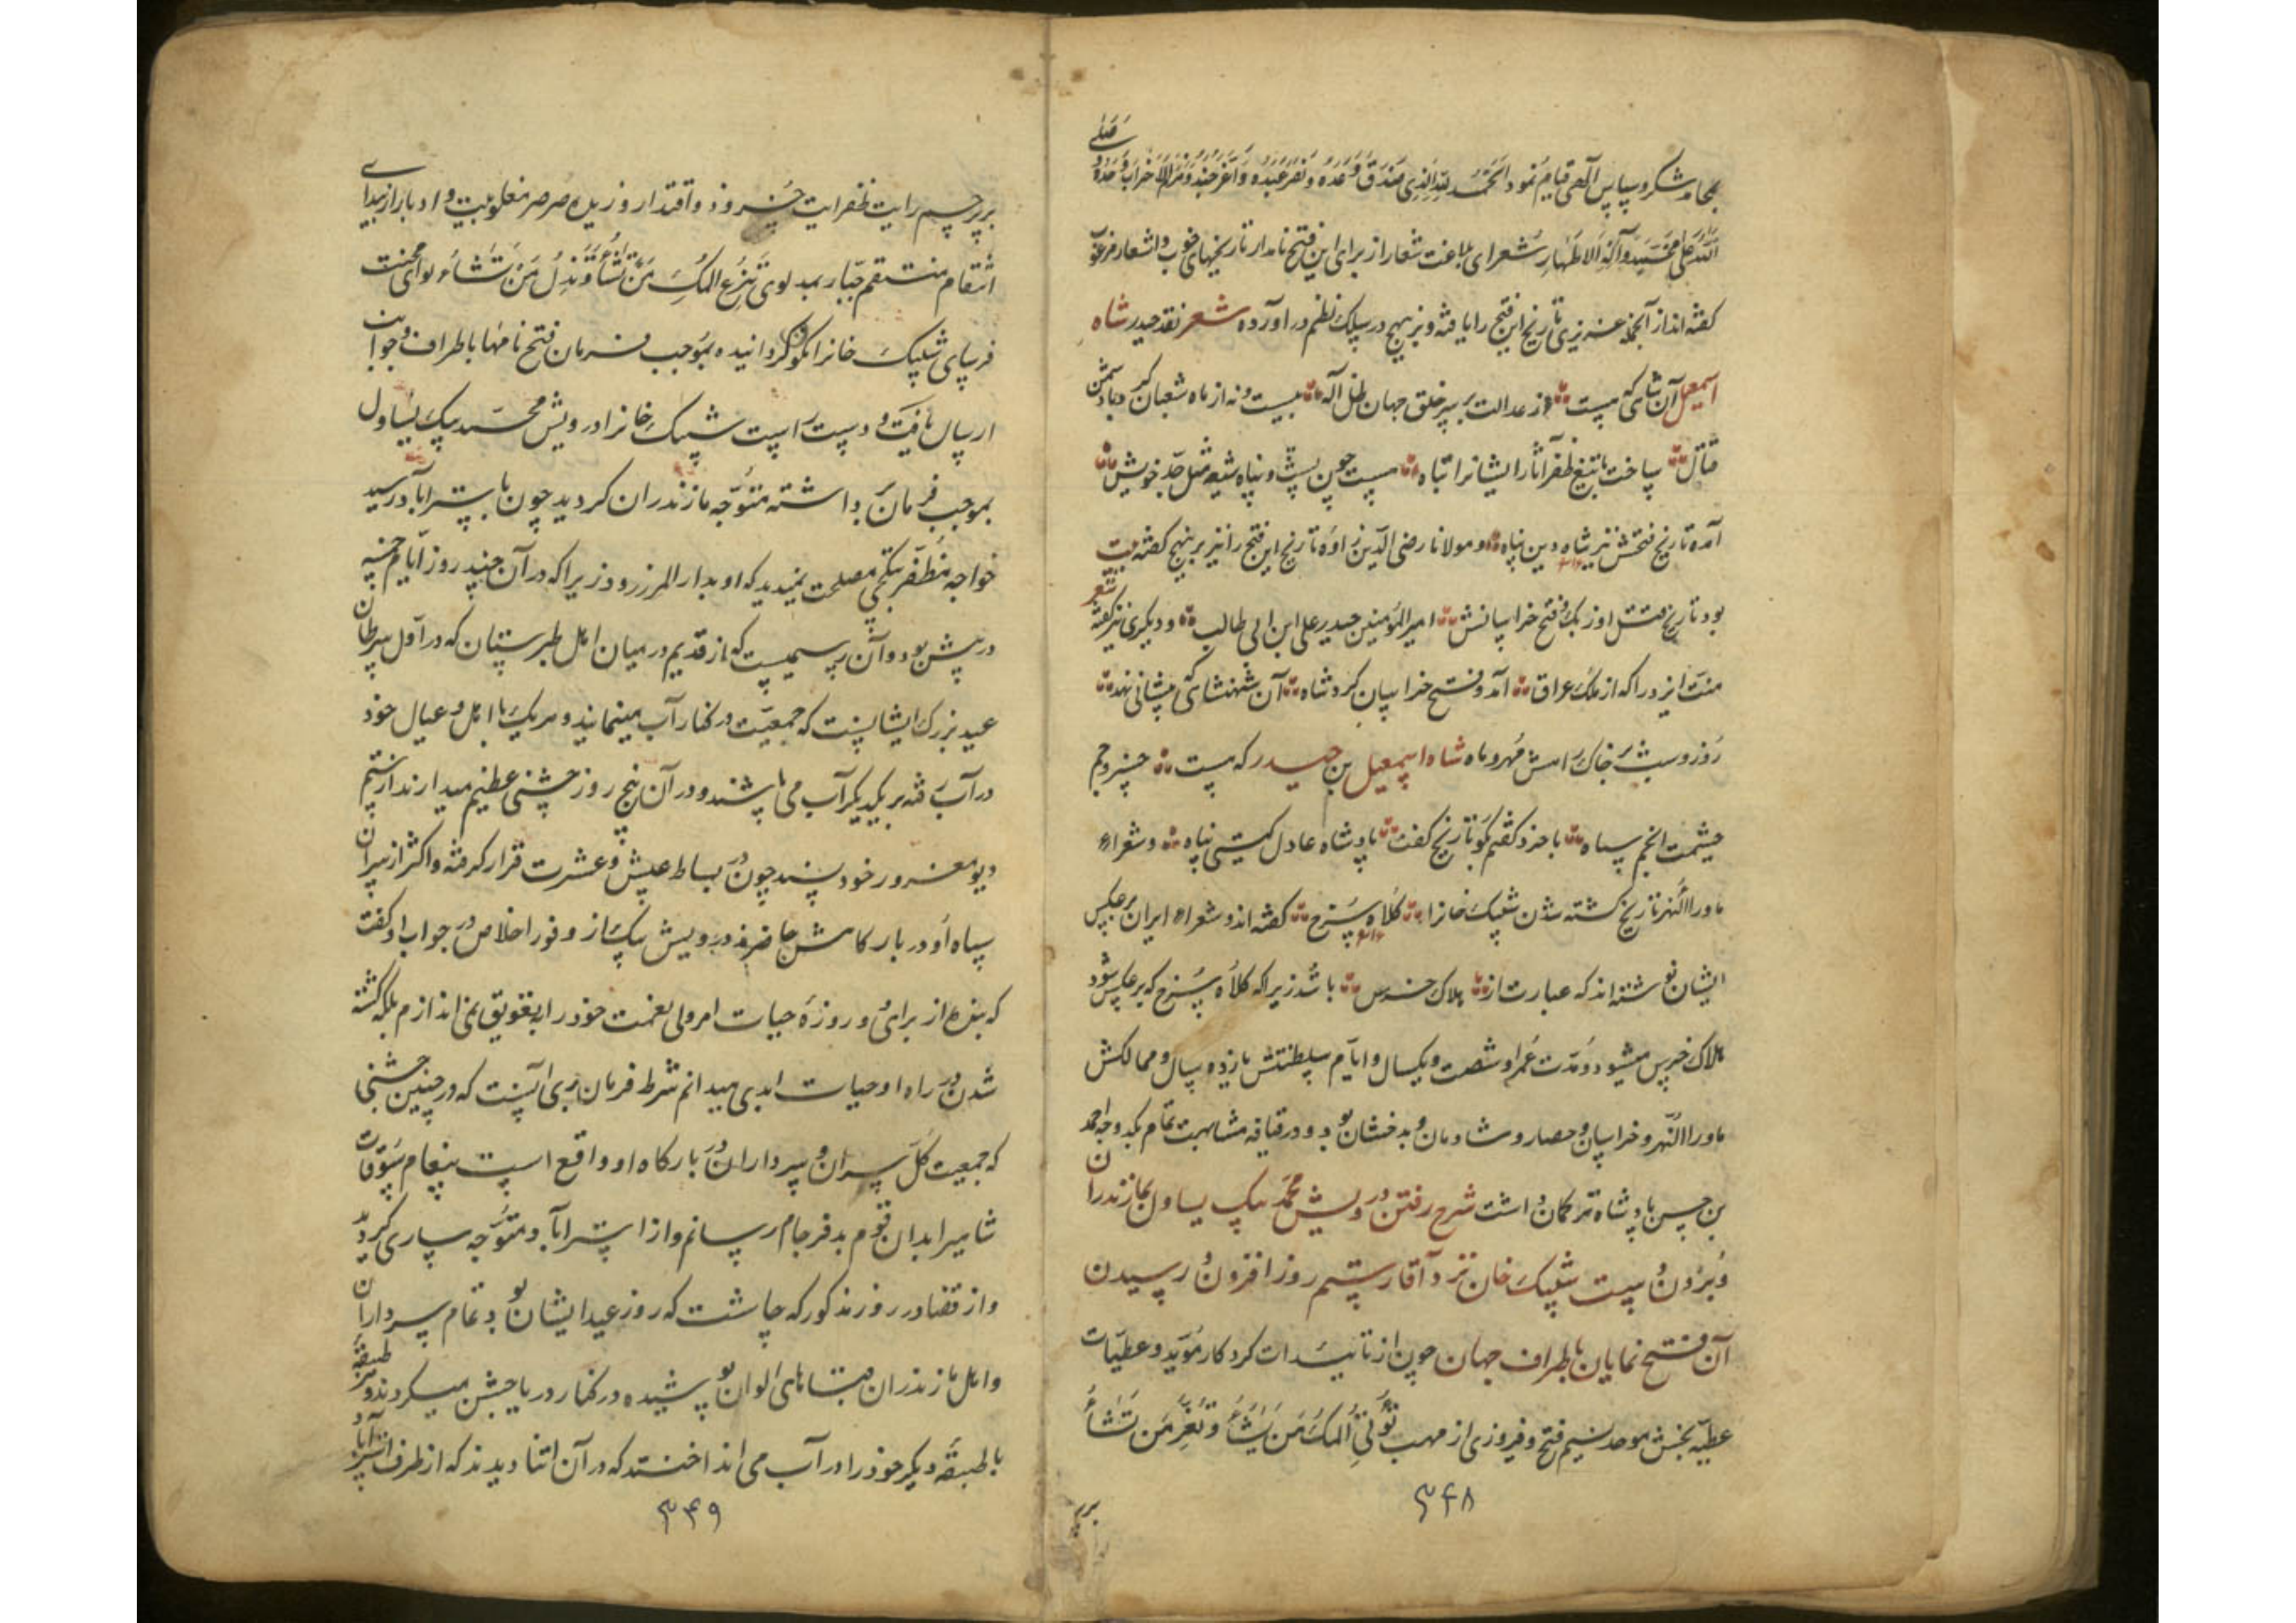 بمحامد شکر و سپاس الهی قیام نمود الحمد لله الذی صدق وعده و نصر عبده و اعز جنده و هزم الاحزاب وحده
و صلی الله علی محمد و آله الاطهار شعرای بلاغت شعار از برای این فتح نامدار تاریخهای خوب و اشعار مرغوب
گفته‌اند از آنجمله عزیزی تاریخ این فتح را یافته و بزینهج در سلک نظم در آورده شعر نقد حیدر شاه
اسمعیل آن شاهی که هست از عدالت بر سر خلق جهان ظل اله بیست و نه از ماه شعبان کرد با دشمن
قتال ساخت با تیغ ظفر آثار ایشانرا تباه هست چون پشت و پناه شیعه مثل جد خویش
آمد تاریخ فتحش نیز شاه دین پناه ۹۱۶ و مولانا رضی الدین زاوه تاریخ این فتح را نیز برینهج گفته بیت
بود تاریخ قتل اوزبک و فتح خراسانش امیر المؤمنین حیدر علی ابن ابی طالب و دیگری نیز گفته شعر
منت ایزد را که از ملک عراق آمد و فتح خراسان کرد شاه آن شهنشاهی که پیشانی نهد
روز و شب بر خاک راهش مهر و ماه شاه اسمعیل بن حیدر که هست خسرو جم
حشمت انجم سپاه با خرد گفتم بگو تاریخ گفت پادشاه عادل گیتی پناه و شعراء
ماوراالنهر تاریخ کشته شدن شیبک خانرا کلاه سرخ ۹۱۶ گفته‌اند و شعراء ایران برعکس
ایشان نوشته‌اند که عبارت از هلاک خرس باشد زیرا که کلاه سرخ که برعکس شود
هلاک خرس میشود و مدت عمر او شصت و یکسال و ایام سلطنتش یازده سال و ممالکش
ماوراالنهر و خراسان و حصار و شادمان و بدخشان بود و در قیافه مشابهت تمام بکدوجه احمد
بن حسن پادشاه ترکمان داشت شرح رفتن درویش محمد بیک یساول بمازندران
و بردن دست شیبک خان نزد آقا رستم روز افزون و رسیدن
آن فتح نمایان باطراف جهان چون از تاییدات کردکار مؤید و عطیات
عطیه بخش موحد نسیم فتح و فیروزی از مهب تؤتی الملک من تشاء و تعز من تشاء
۳۴۸
بر
بر پرچم رایت ظفر آیت خسرو ذو اقتدار وزید و صرصر مغلوبیت و ادبار از بیدای
انتقام منتقم جبار بمدلوی تنزع الملک من تشاء و تذل من تشاء لوای محنت
فرسای شیبک خانرا نکون گردانیده بموجب فرمان فتح نامها باطراف و جوانب
ارسال یافت و دست راست شیبک خانرا درویش محمد بیک یساول
بموجب فرمان برداشته متوجه مازندران کردید چون باستراباد رسید
خواجه مظفر بتکچی مصلحت نمیدید که او بدار المرز رود زیرا که در آن چند روز ایام خمسه
در پیش بود و آن رسمیست که از قدیم در میان اهل طبرستان که در اول سرطان
عید بزرک ایشانست که جمعیت در کنار آب مینمایند و هر یک با اهل و عیال خود
در آب رفته بر یکدیگر آب می پاشند و در آن پنج روز جشنی عظیم میدارند از رستم
دیو مغرور خود پسند چون در بساط عیش و عشرت قرار گرفته و اکثر از سران
سپاه او در بارکاهش حاضرند درویش بیک از وفور اخلاص در جواب او گفت
که بنده از برای دو روزه حیات امر ولی نعمت خود را بتعویق نمی اندازم بلکه کشته
شدن در راه او حیات ابدی میدانم شرط فرمان بری آنست که در چنین جشنی
که جمعیت کل سران و سرداران در بارکاه او واقع است پیغام و سوقات
شاهیرا بدان قوم بدفرجام رسانم و از استراباد متوجه ساری گردید
و از قضا در روز مذکور که چاشت که روز عید ایشان بود تمام سرداران
و اهل مازندران قباهای الوان پوشیده در کنار دریا جشن میکردند و هر طبقه
با طبقه دیگر خود را در آب می انداختند که در آن اثنا دیدند که از طرف استراباد
۳۴۹